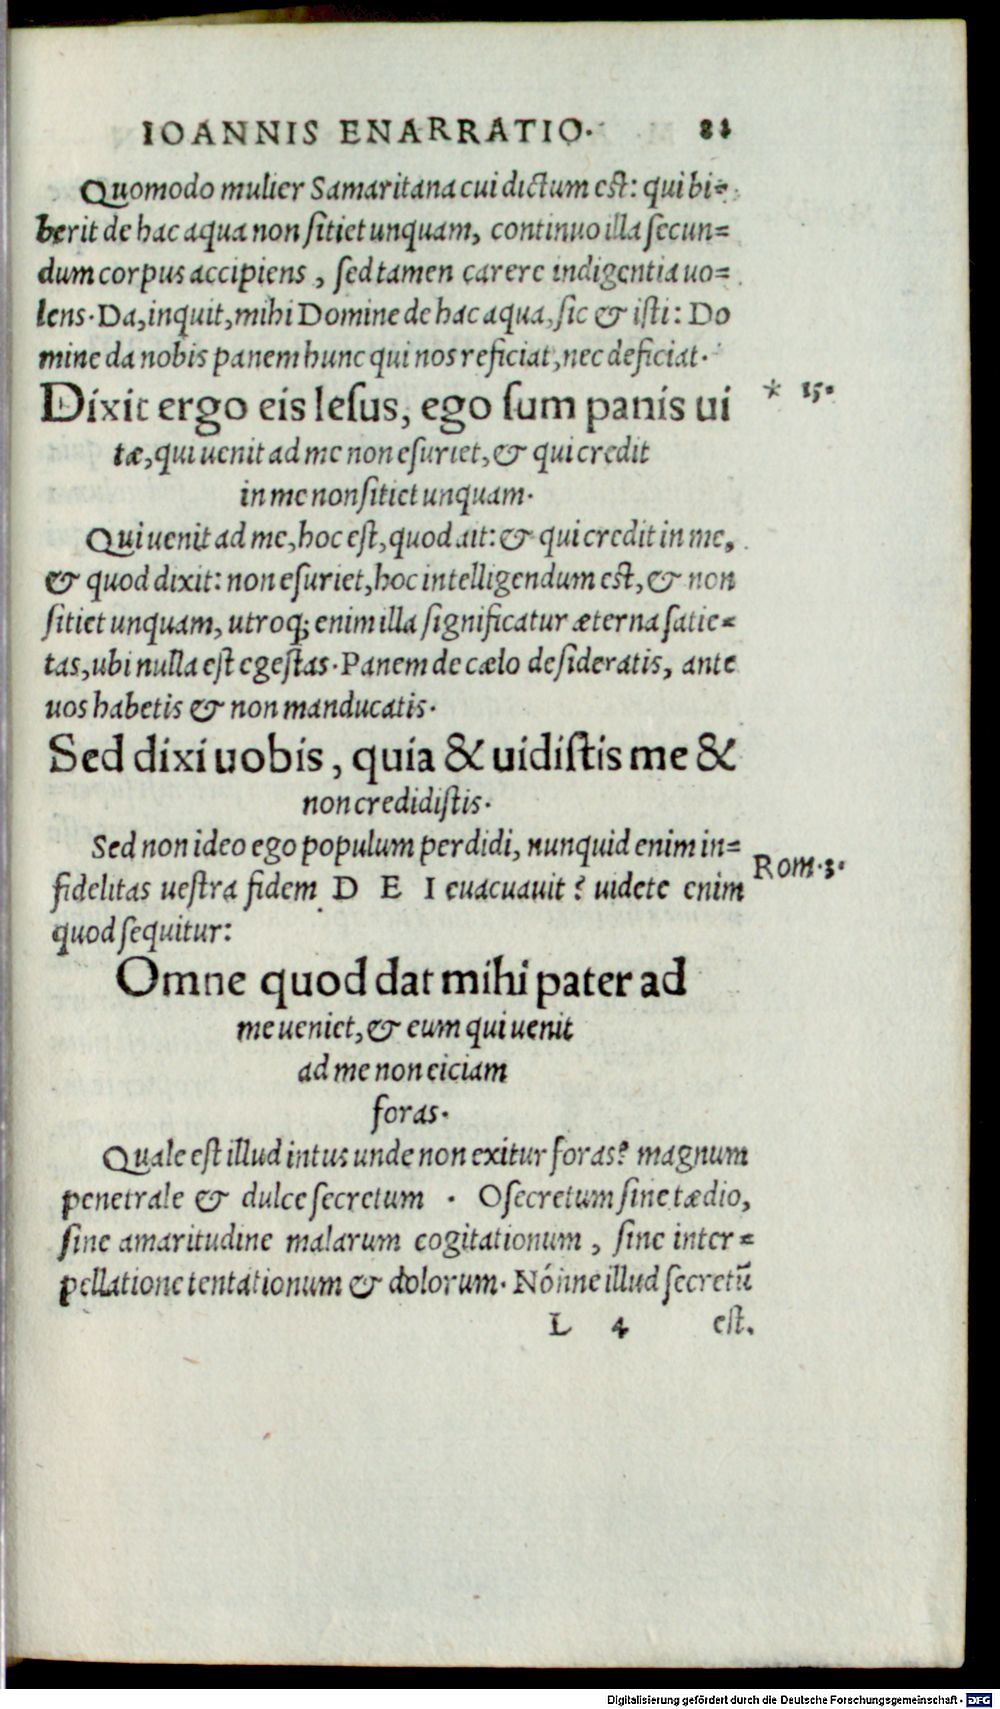 IOANNIS ENARRATIO. 88
Quomodo mulier Samaritana cui dictum est: qui bi=
berit de hac aqua non sitiet unquam, continuo illa secun=
dum corpus accipiens, sed tamen carere indigentia uo=
lens. Da, inquit, mihi Domine de hac aqua, sic & isti: Do
mine da nobis panem hunc qui nos reficiat, nec deficiat.
Dixit ergo eis Iesus, ego sum panis ui
* 15.
tæ, qui uenit ad me non esuriet, & qui credit
in me non sitiet unquam.
Qui uenit ad me, hoc est, quod ait: & qui credit in me,
& quod dixit: non esuriet, hoc intelligendum est, & non
sitiet unquam, utroq; enim illa significatur æterna satie=
tas, ubi nulla est egestas. Panem de cælo desideratis, ante
uos habetis & non manducatis.
Sed dixi uobis, quia & uidistis me &
non credidistis.
Sed non ideo ego populum perdidi, nunquid enim in=
Rom. 3.
fidelitas uestra fidem D E I euacuauit? uidete enim
quod sequitur:
Omne quod dat mihi pater ad
me ueniet, & eum qui uenit
ad me non eiciam
foras.
Quale est illud intus unde non exitur foras? magnum
penetrale & dulce secretum . O secretum sine tædio,
sine amaritudine malarum cogitationum, sine inter=
pellatione tentationum & dolorum. Nónne illud secretū
L 4 est.
Digitalisierung gefördert durch die Deutsche Forschungsgemeinschaft - DFG